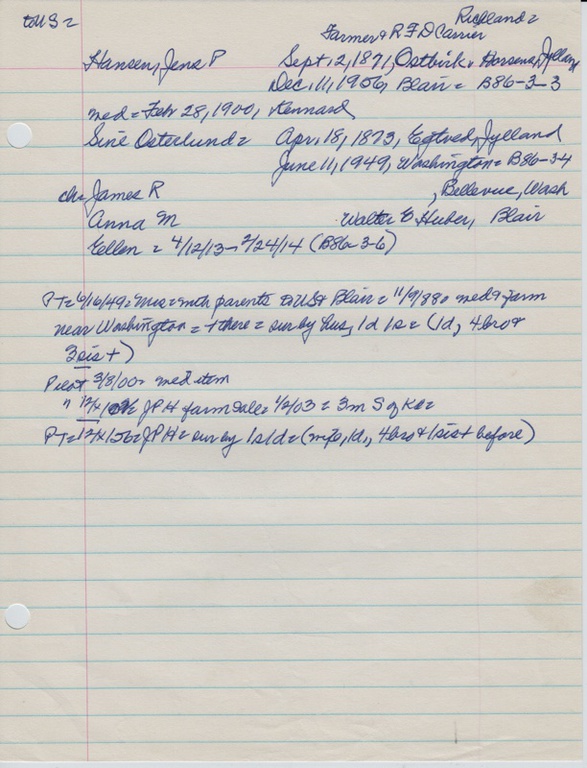 to US = Richland =
Farmer & R F D Carrier
Hansen, Jens P Sept. 2, 1871, Ostbirk v Horsens, Jylland
Dec. 11, 1956, Blair = B86-3-3
med = Feb 28, 1900, Kennard
Sine Osterlund = Apr. 18, 1873, Egtved, Jylland
June 11, 1949, Washington = B86-3-4
ch = James R , Bellevue, Wash
Anna M Walter E Huber, Blair
Ellen = 4/12/13 - 2/24/14 (B86-3-6)
PT = 6/16/49 = Mrs = with parents to US & Blair = 11/9/88 = med & farm
near Washington = + there = sur by hus, 1d 1s = (1d, 4bro &
3sis +)
Pilot 3/8/00 = med item
" 12/ JPH farm sale = 1/2/03 = 3m S of Ke =
PT = 12/ /56 = JPH = sur by 1s 1d = (wife, 1d, 4bro & 1sis + before)